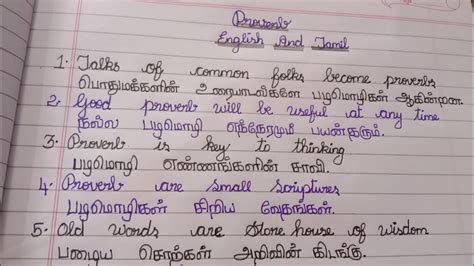 Proverb
English And Tamil
1. Talks of common folks become proverbs
பொதுமக்களின் உரையாடல்களே பழமொழிகள் ஆகின்றன.
2. Good proverb will be useful at any time
நல்ல பழமொழி எந்நேரமும் பயன்தரும்.
3. Proverb is key to thinking
பழமொழி எண்ணங்களின் சாவி.
4. Proverb are small scriptures
பழமொழிகள் சிறிய வேதங்கள்.
5. Old words are Stone house of wisdom
பழைய சொற்கள் அறிவின் கிடங்கு.